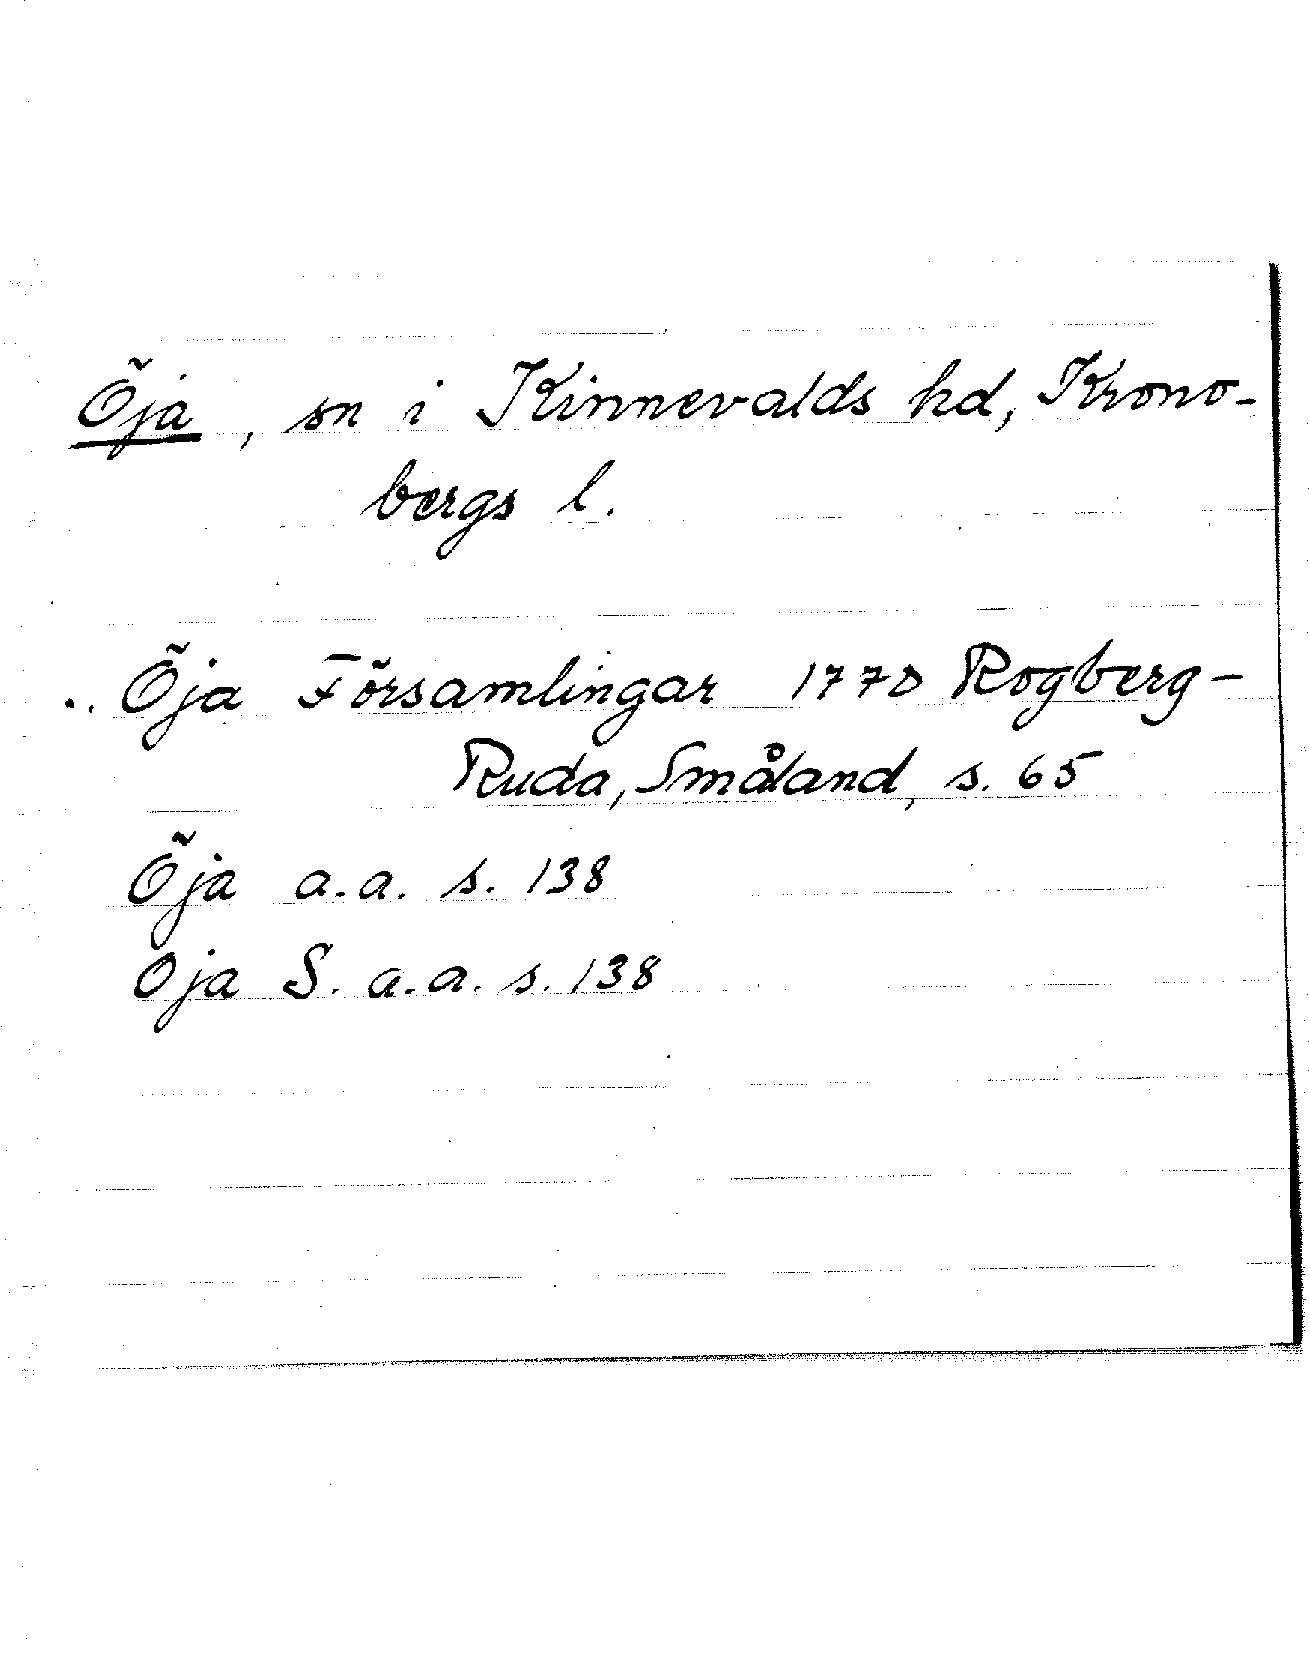 Öja, sn i Kinnevalds hd, Krono-
bergs l.
.. Öja Församlingar 1770 Rogberg-
Ruda, Småland, s. 65
Öja a.a. s. 138
Oja S. a.a. s. 138